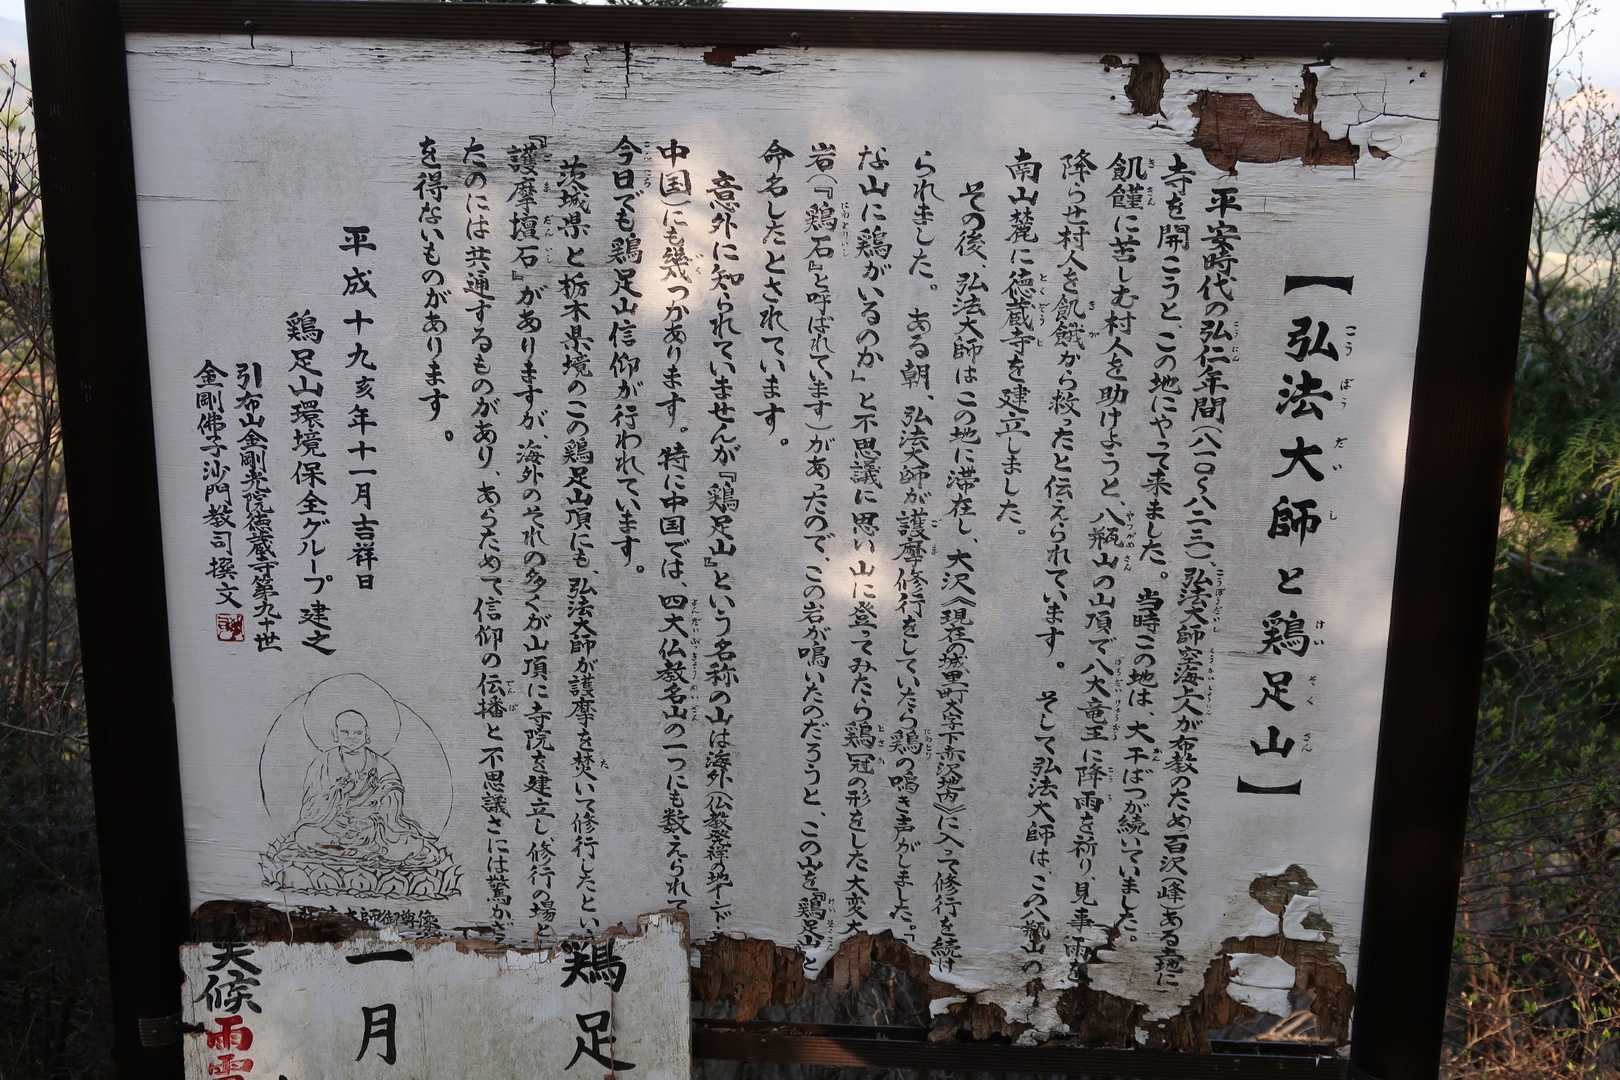 【弘法大師と鶏足山】
平安時代の弘仁年間(八一〇〜八二三)、弘法大師空海上人が布教のため百沢(峰)ある土地に
寺を開こうと、この地にやって来ました。当時この地は、大干ばつが続いていました。
飢饉に苦しむ村人を助けようと、八瓶山の山頂で八大竜王に降雨を祈り、見事雨を
降らせ村人を飢餓から救ったと伝えられています。そして弘法大師は、この八瓶山の
南山麓に徳蔵寺を建立しました。
その後、弘法大師はこの地に滞在し、大沢(現在の城里町大字下赤沢地内)に入って修行を続け
られました。ある朝、弘法大師が護摩修行をしていたら鶏の鳴き声がしました。「
な山に鶏がいるのか」と不思議に思い山に登ってみたら鶏冠の形をした大変大
岩(『鶏石』と呼ばれています)があったので、この岩が鳴いたのだろうと、この山を『鶏足山』と
命名したとされています。
意外に知られていませんが『鶏足山』という名称の山は海外(仏教発祥の地インド・
中国)にも幾つかあります。特に中国では、四大仏教名山の一つにも数えられて
今日でも鶏足山信仰が行われています。
茨城県と栃木県境のこの鶏足山頂にも、弘法大師が護摩を焚いて修行したとい
『護摩壇石』がありますが、海外のそれの多くが山頂に寺院を建立し、修行の場と
たのには共通するものがあり、あらためて信仰の伝播と不思議さには驚かさ
を得ないものがあります。
平成十九亥年十一月吉祥日
鶏足山環境保全グループ 建之
引布山金剛光院徳蔵寺第九十世
金剛佛子沙門教司 撰文
大師御尊像
鶏足
一月
天候
雨雪